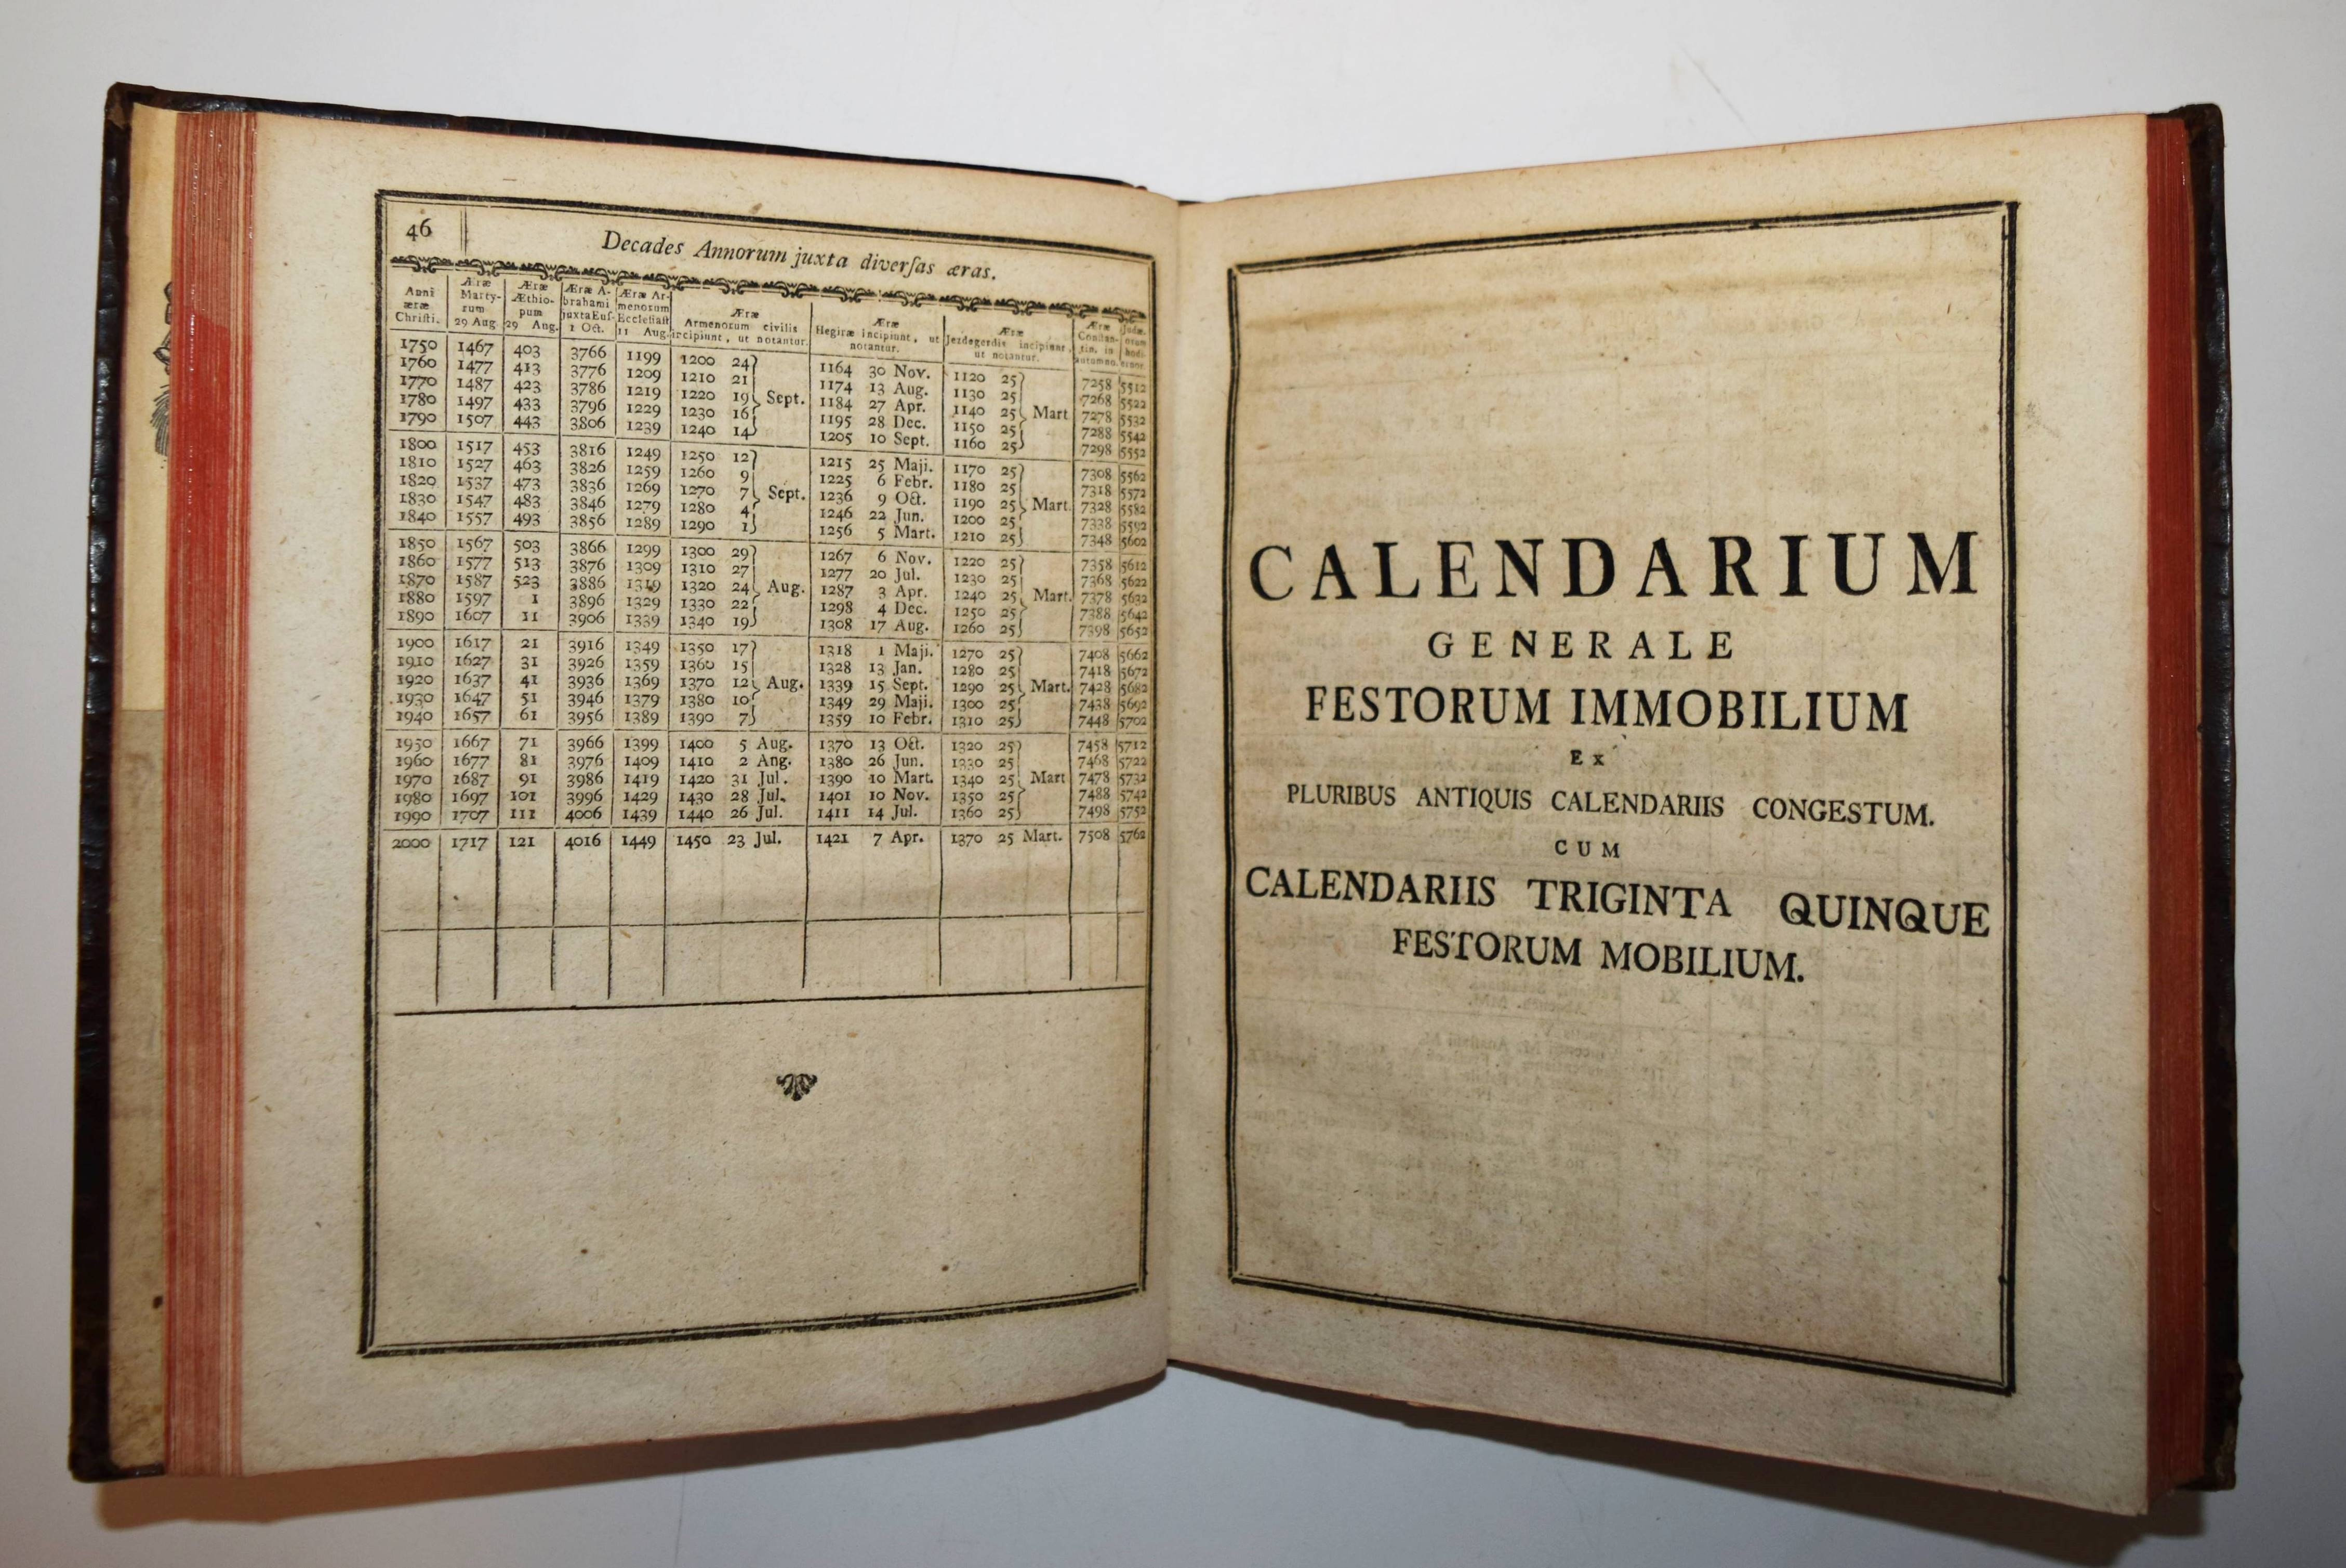 46
Decades Annorum juxta diverſas æras.
Anni æræ Chriſti. | Æræ Martyrum 29 Aug | Æræ Æthiopum 29 Aug. | Æræ Abrahami juxta Euſ. 1 Oct. | Æræ Armenorum Eccleſiaſt 11 Aug. | Æræ Armenorum civilis incipiunt, ut notantur. | Æræ Hegiræ incipiunt, ut notantur. | Æræ Jezdegerdis incipiunt, ut notantur. | Æræ Conſtantin. in autumno.
1750 1467 403 3766 1199 1200 24 1164 30 Nov. 1120 25 7258 5512
1760 1477 413 3776 1209 1210 21 1174 13 Aug. 1130 25 7268 5522
1770 1487 423 3786 1219 1220 19 Sept. 1184 27 Apr. 1140 25 Mart 7278 5532
1780 1497 433 3796 1229 1230 16 1195 28 Dec. 1150 25 7288 5542
1790 1507 443 3806 1239 1240 14 1205 10 Sept. 1160 25 7298 5552
1800 1517 453 3816 1249 1250 12 1215 25 Maji. 1170 25 7308 5562
1810 1527 463 3826 1259 1260 9 1225 6 Febr. 1180 25 7318 5572
1820 1537 473 3836 1269 1270 7 Sept. 1236 9 Oct. 1190 25 Mart. 7328 5582
1830 1547 483 3846 1279 1280 4 1246 22 Jun. 1200 25 7338 5592
1840 1557 493 3856 1289 1290 1 1256 5 Mart. 1210 25 7348 5602
1850 1567 503 3866 1299 1300 29 1267 6 Nov. 1220 25 7358 5612
1860 1577 513 3876 1309 1310 27 1277 20 Jul. 1230 25 7368 5622
1870 1587 523 3886 1319 1320 24 Aug. 1287 3 Apr. 1240 25 Mart. 7378 5632
1880 1597 1 3896 1329 1330 22 1298 4 Dec. 1250 25 7388 5642
1890 1607 11 3906 1339 1340 19 1308 17 Aug. 1260 25 7398 5652
1900 1617 21 3916 1349 1350 17 1318 1 Maji. 1270 25 7408 5662
1910 1627 31 3926 1359 1360 15 1328 13 Jan. 1280 25 7418 5672
1920 1637 41 3936 1369 1370 12 Aug. 1339 15 Sept. 1290 25 Mart. 7428 5682
1930 1647 51 3946 1379 1380 10 1349 29 Maji. 1300 25 7438 5692
1940 1657 61 3956 1389 1390 7 1359 10 Febr. 1310 25 7448 5702
1950 1667 71 3966 1399 1400 5 Aug. 1370 13 Oct. 1320 25 7458 5712
1960 1677 81 3976 1409 1410 2 Aug. 1380 26 Jun. 1330 25 7468 5722
1970 1687 91 3986 1419 1420 31 Jul. 1390 10 Mart. 1340 25 Mart 7478 5732
1980 1697 101 3996 1429 1430 28 Jul. 1401 10 Nov. 1350 25 7488 5742
1990 1707 111 4006 1439 1440 26 Jul. 1411 14 Jul. 1360 25 7498 5752
2000 1717 121 4016 1449 1450 23 Jul. 1421 7 Apr. 1370 25 Mart. 7508 5762
CALENDARIUM
GENERALE
FESTORUM IMMOBILIUM
EX
PLURIBUS ANTIQUIS CALENDARIIS CONGESTUM.
CUM
CALENDARIIS TRIGINTA QUINQUE
FESTORUM MOBILIUM.